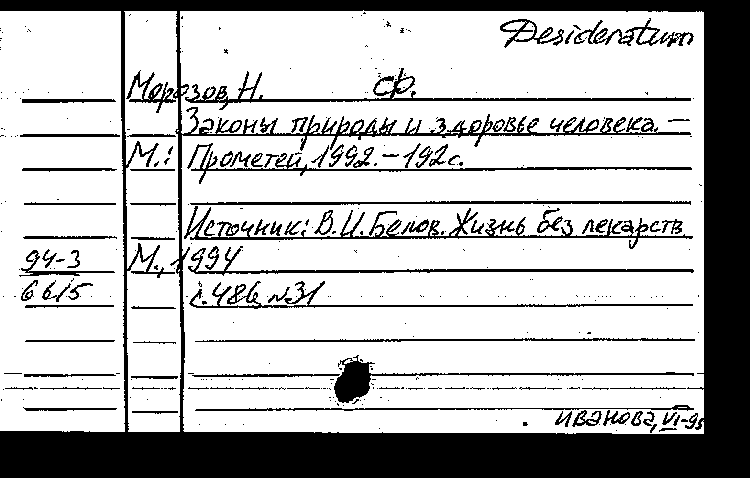 Desideratum
Морозов, Н. Ф.
Законы природы и здоровье человека. —
М.: Прометей, 1992. — 192 с.
Источник: В.И. Белов. Жизнь без лекарств
94-3 М., 1994
6615 с. 486, №31
Иванова, VI-95